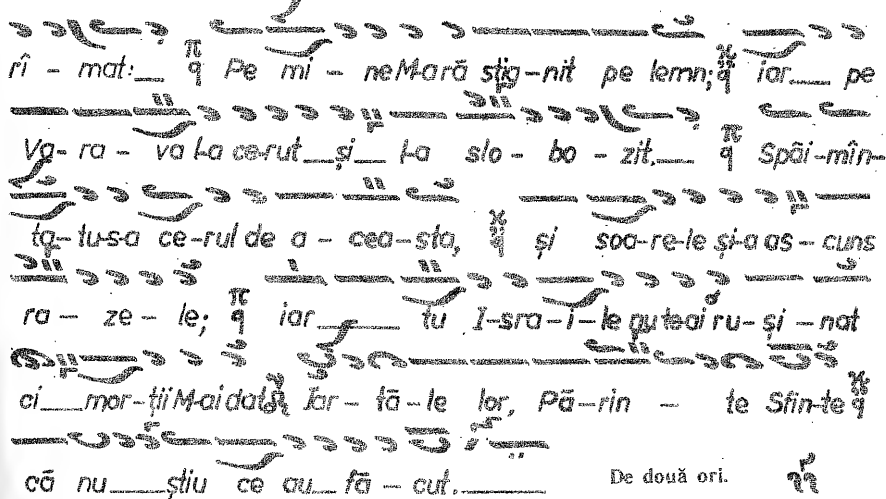 rî - mat:__ Pe mi - ne M-ară stig-nit pe lemn; iar__ pe
Va- ra - va L-a ce-rut__și__ L-a slo - bo - zit.__ Spăi-mîn-
ta-tu-s-a ce-rul de a - cea-sta, și soa-re-le și-a as-cuns
ra - ze - le; iar____ tu I-sra-i-le nu te-ai ru-și-nat
ci__mor-ții M-ai dat. Iar-tă-le lor, Pă-rin - te Sfin-te
că nu__știu ce au__ fă-cut.____ De două ori.